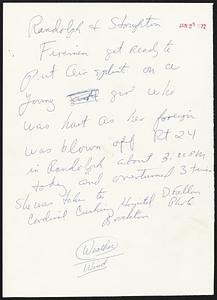 Randolph & Stoughton
JAN 25 1972
Firemen get ready to
put air splint on a
young girl who
was hurt as her foreign
was blown off Rt 24
in Randolph about 3:20 PM
today and overturned 3 times
She was taken to D Fallon
Cardinal Cushing Hospital Photo
Brockton
Weather
Wind